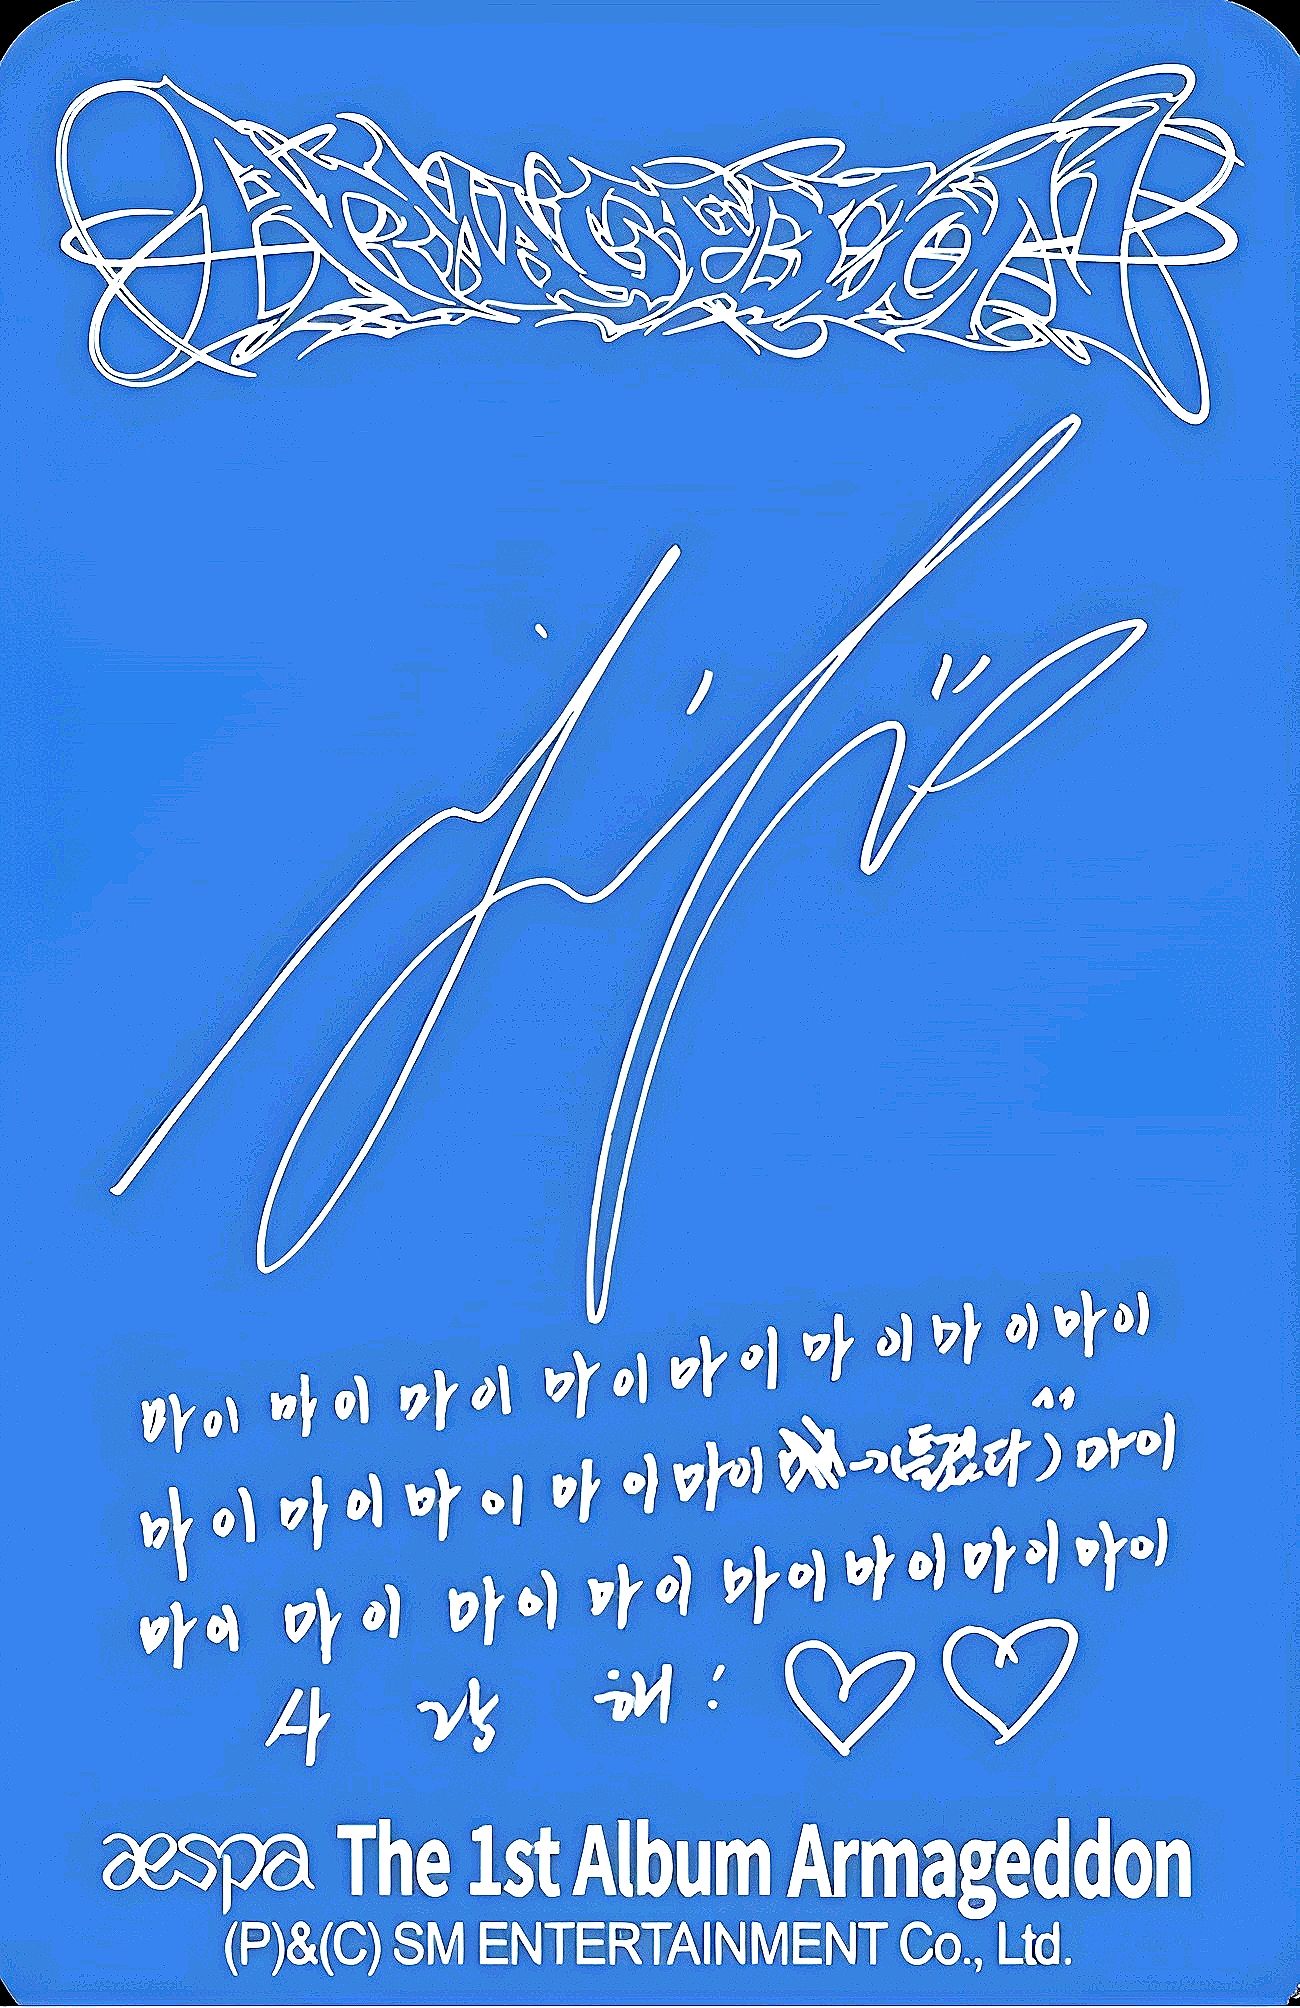 ARMAGEDDON
마이 마이 마이 마이 마이 마이 마이 마이
마이 마이 마이 마이 마이 (들켰다) ^^ 마이
마이 마이 마이 마이 마이 마이 마이 마이
사 랑 해 : ♡ ♡
aespa The 1st Album Armageddon
(P)&(C) SM ENTERTAINMENT Co., Ltd.